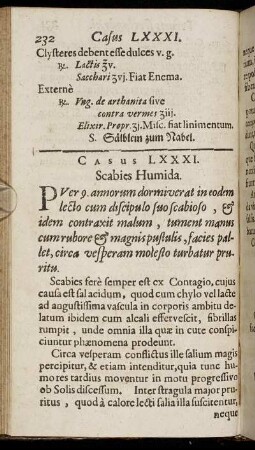 232 Casus LXXXI.
Clysteres debent esse dulces v. g.
℞. Lactis ℥v.
Sacchari ʒvj. Fiat Enema.
Externè
℞. Vng. de arthanita sive
contra vermes ʒiij.
Elixir. Propr. ʒj. Misc. fiat linimentum.
S. Sälblein zum Nabel.
CASUS LXXXI.
Scabies Humida.
PVer 9. annorum dormiverat in eodem
lecto cum discipulo suo scabioso, &
idem contraxit malum, tument manus
cum rubore & magnis pustulis, facies pal-
let, circa vesperam molesto turbatur pru-
ritu.
Scabies ferè semper est ex Contagio, cujus
causa est sal acidum, quod cum chylo vel lacte
ad augustissima vascula in corporis ambitu de-
latum ibidem cum alcali effervescit, fibrillas
rumpit, unde omnia illa quæ in cute conspi-
ciuntur phænomena prodeunt.
Circa vesperam conflictus ille salium magis
percipitur, & etiam intenditur, quia tunc hu-
mores tardius moventur in motu progressivo
ob Solis discessum. Inter stragula major pru-
ritus, quod à calore lecti salia illa suscitentur,
neque